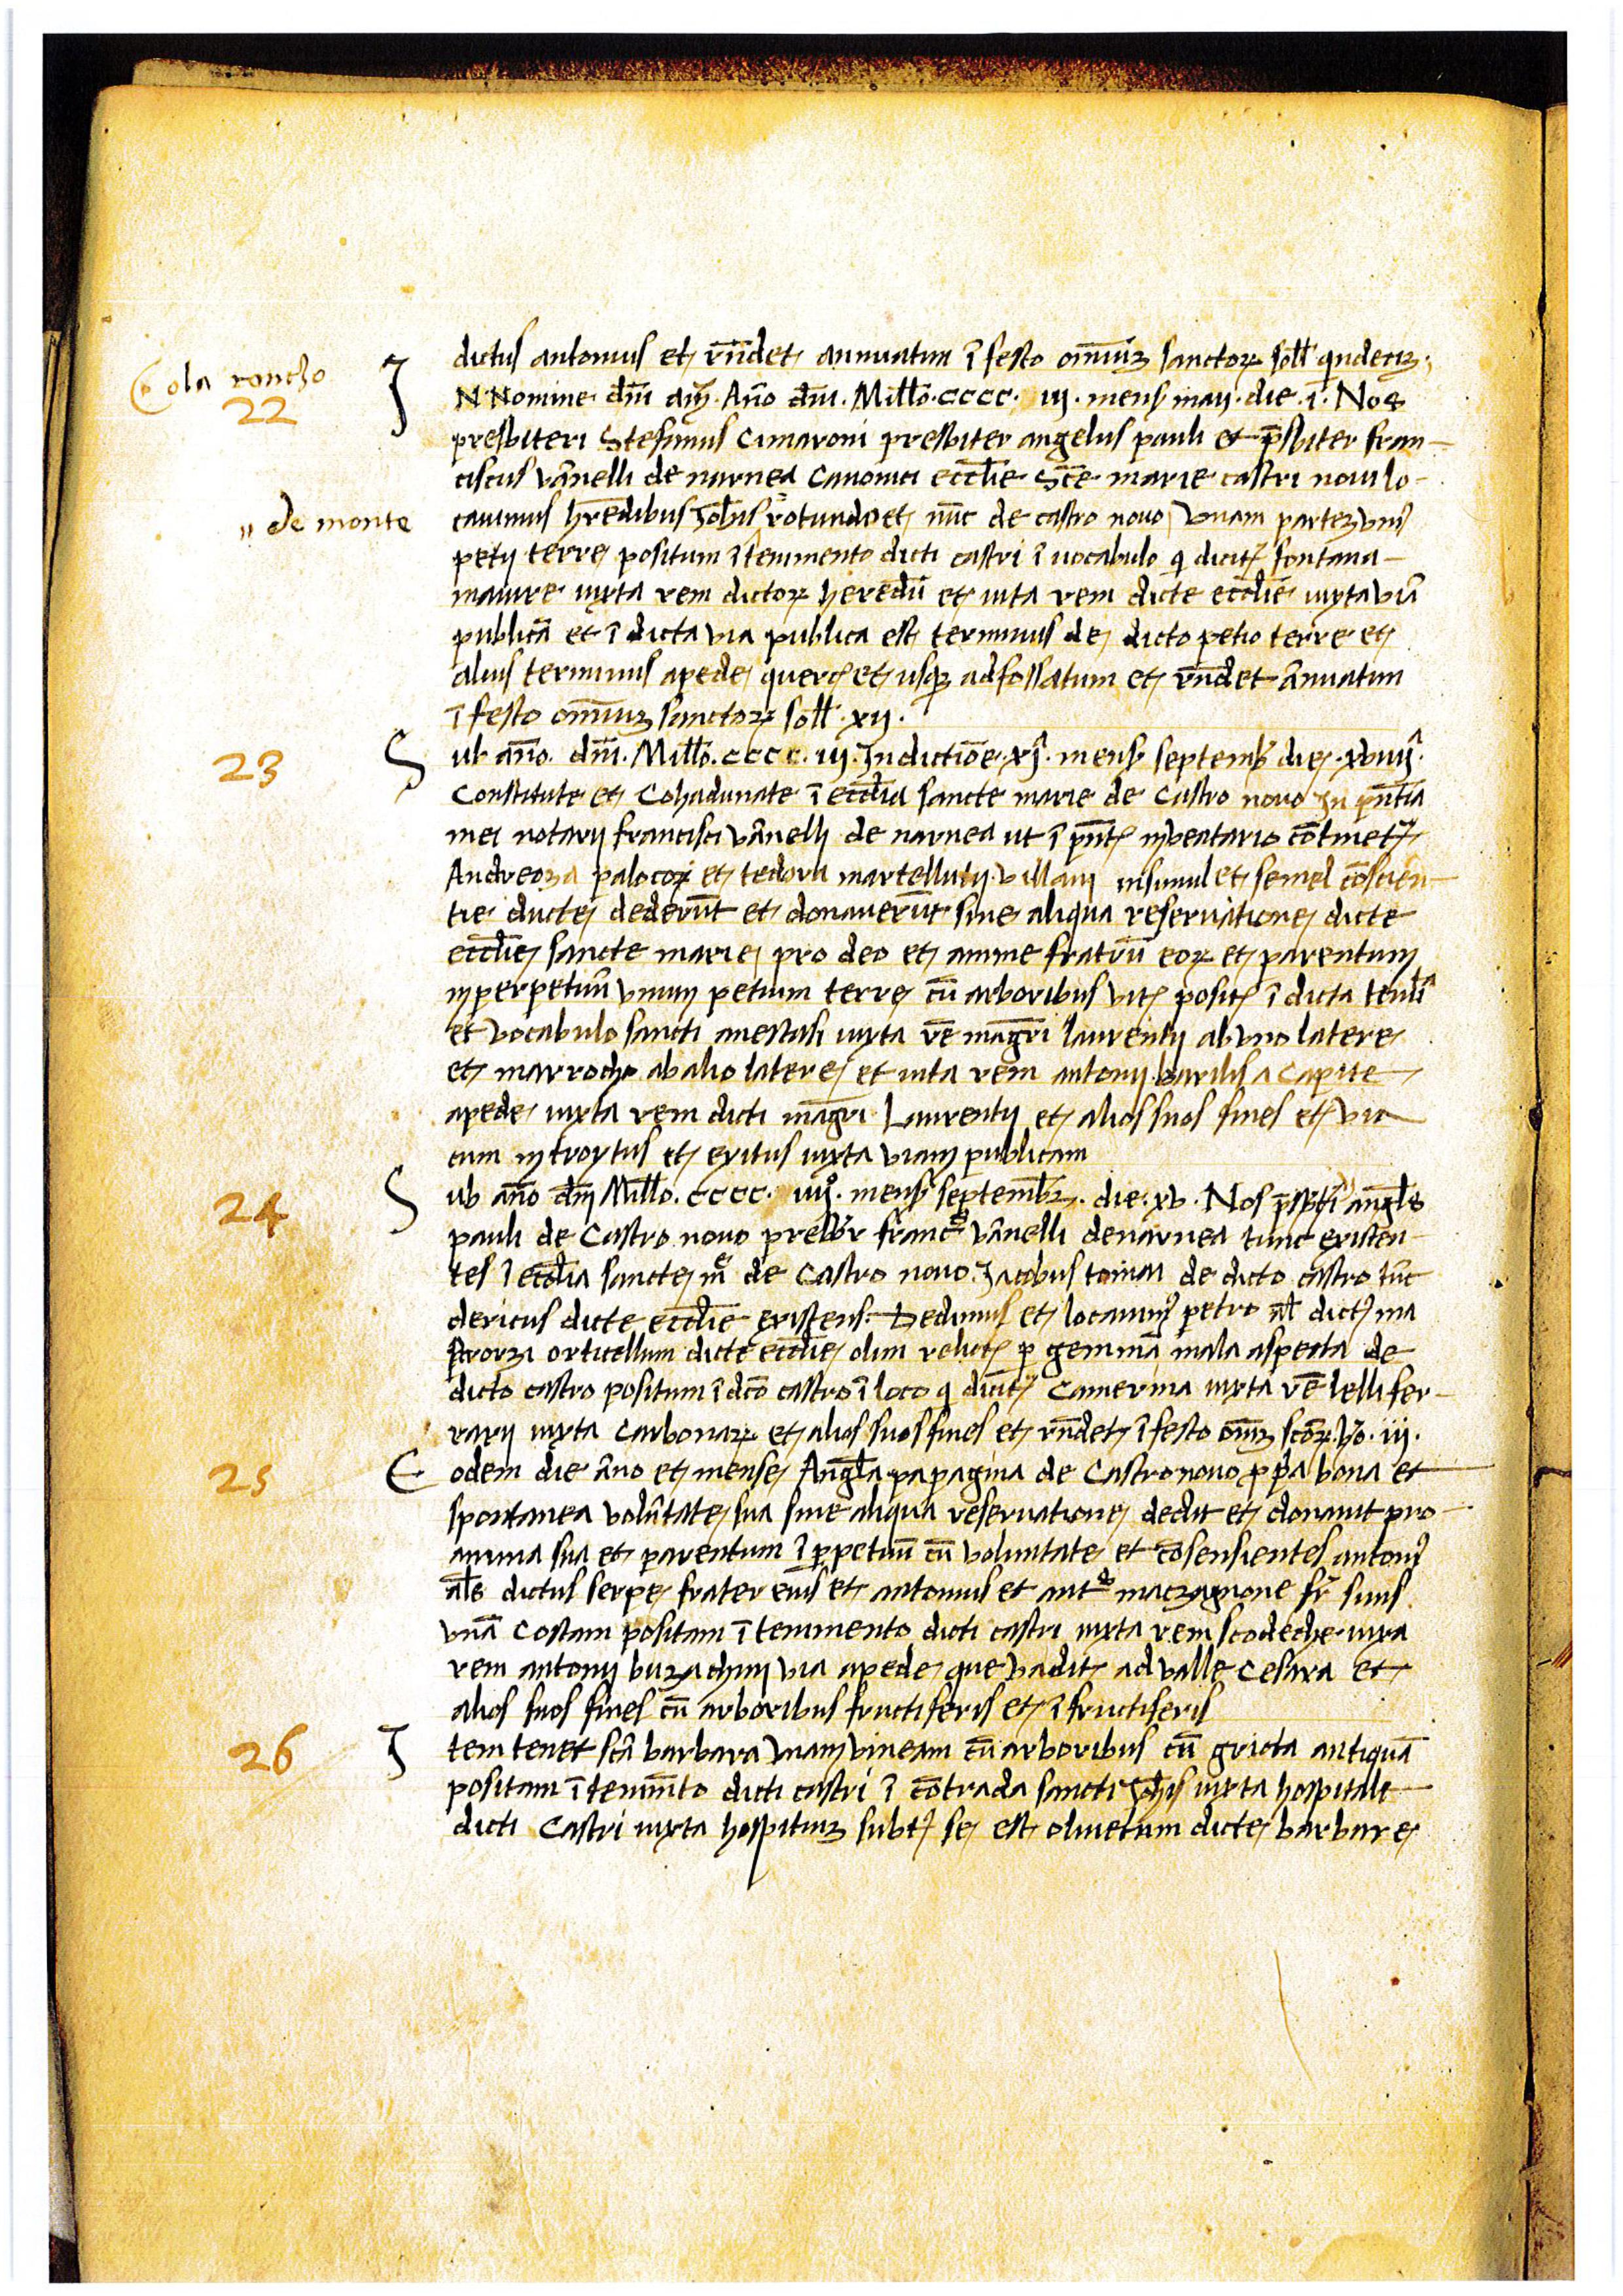 dictus antonius et rñdet annuatim ĩ festo omĩuȝ sanctoꝝ soll̃ qndeciȝ
Cola roncho
22
IN Nomine dm̃i am̃. Año dm̃i. Mill̃o. cccc. iij. mens maij. die. i. Nos
presbiteri Stefanus Cimaroni presbiter angelus pauli et p̃sbiter fran-
ciscus vãnelli de narnea Canonici eccl̃ie Sc̃e marie castri noui lo-
„ de monte
cauimus hr̃edibus Joh̃is rotundo et nũc de castro nouo vnam parteȝ vnis
petij terre positum ĩ tenimento dicti castri ĩ uocabulo q dicit̃ fontana
maiure iuxta rem dictoꝝ heredũ et iuta rem dicte eccl̃ie iuxta viã
publicã et ĩ dicta via publica est terminus de dicto petio terre et
alius terminus apede querc̃ et usqȝ ad fossatum et rñdet ãnuatim
ĩ festo omĩuȝ sanctoꝝ soll̃. xij.
23
Sub año. dm̃i. Mill̃o. cccc. iij. Indictiõe. xj. mens septemb̃ die. xviiij.
Constitute et Cohadunate ĩ eccl̃ia sancte marie de Castro nouo In pñtia
mei notarij francisci vãnelli de narnea ut ĩ pñt̃ inventario cõtinet̃
Andreoza palocoꝝ et tedora martellutij villani insimul et semel cõscien-
tie ducte dederũt et donauerũt sine aliqua reseruatione dicte
eccl̃ie sancte marie pro deo et anime fratrũ eoꝝ et parentum
in perpetuũ vnum petium terre cũ arboribus vit̃ posit̃ ĩ dicta tenũ
et vocabulo sancti anestasi iuxta rẽ mag̃ri laurentij ab vno latere
et marrocho ab alio latere et iuta rem antonij barilis a capite
apede iuxta rem dicti mag̃ri Laurentij et alios suos fines et via
cum introytus et exitus iuxta viam publicam
24
Sub año dm̃ Mill̃o. cccc. iiij. mens septemb̃. die. xv. Nos p̃sbĩri angl̃s
pauli de Castro nouo presb̃r franc̃ vãnelli denarnea tunc existen-
tes ĩ eccl̃ia sancte m̃e de Castro nouo. Jacobus tomas de dicto castro tũc
clericus dicte eccl̃ie existens. Dedimus et locauim petro al̃ dict̃ ma
orticellum dicte eccl̃ie olim relict̃ p gemmã mala aspecta de
dicto castro positum ĩ dc̃o castro ĩ loco q dicit̃ Camerina iuxta rẽ lelli fer-
rarij iuxta Carbonaꝝ et alios suos fines et rñdet ĩ festo om̃iȝ sc̃oꝝ. iij.
25
Eodem die ãno et mense Angl̃a papagina de Castronouo p p̃a bona et
spontanea volũtate sua sine aliqua reseruatione dedit et donauit pro
anima sua et parentum ĩ perpetuũ cũ voluntate et cõsensientes antoni
al̃s dictus serpe frater eius et antonius et ant̃ maczagnone fr̃ suus
vnã Costam positam ĩ tenimento dicti castri iuxta rem scodeche iuxa
rem antonij buzachini via apede que vadit ad valle Cesara et
alios suos fines cũ arboribus fructiferis et ĩfructiferis
26
Item tenet sc̃a barbara vnam vineam cũ arboribus cũ gricta antiquã
positam ĩ tenim̃to dicti castri ĩ cõtrada sancti Joh̃is iuxta hospitale
dicti Castri iuxta hospitiuȝ subt̃ se est oliuetum dicte barbare